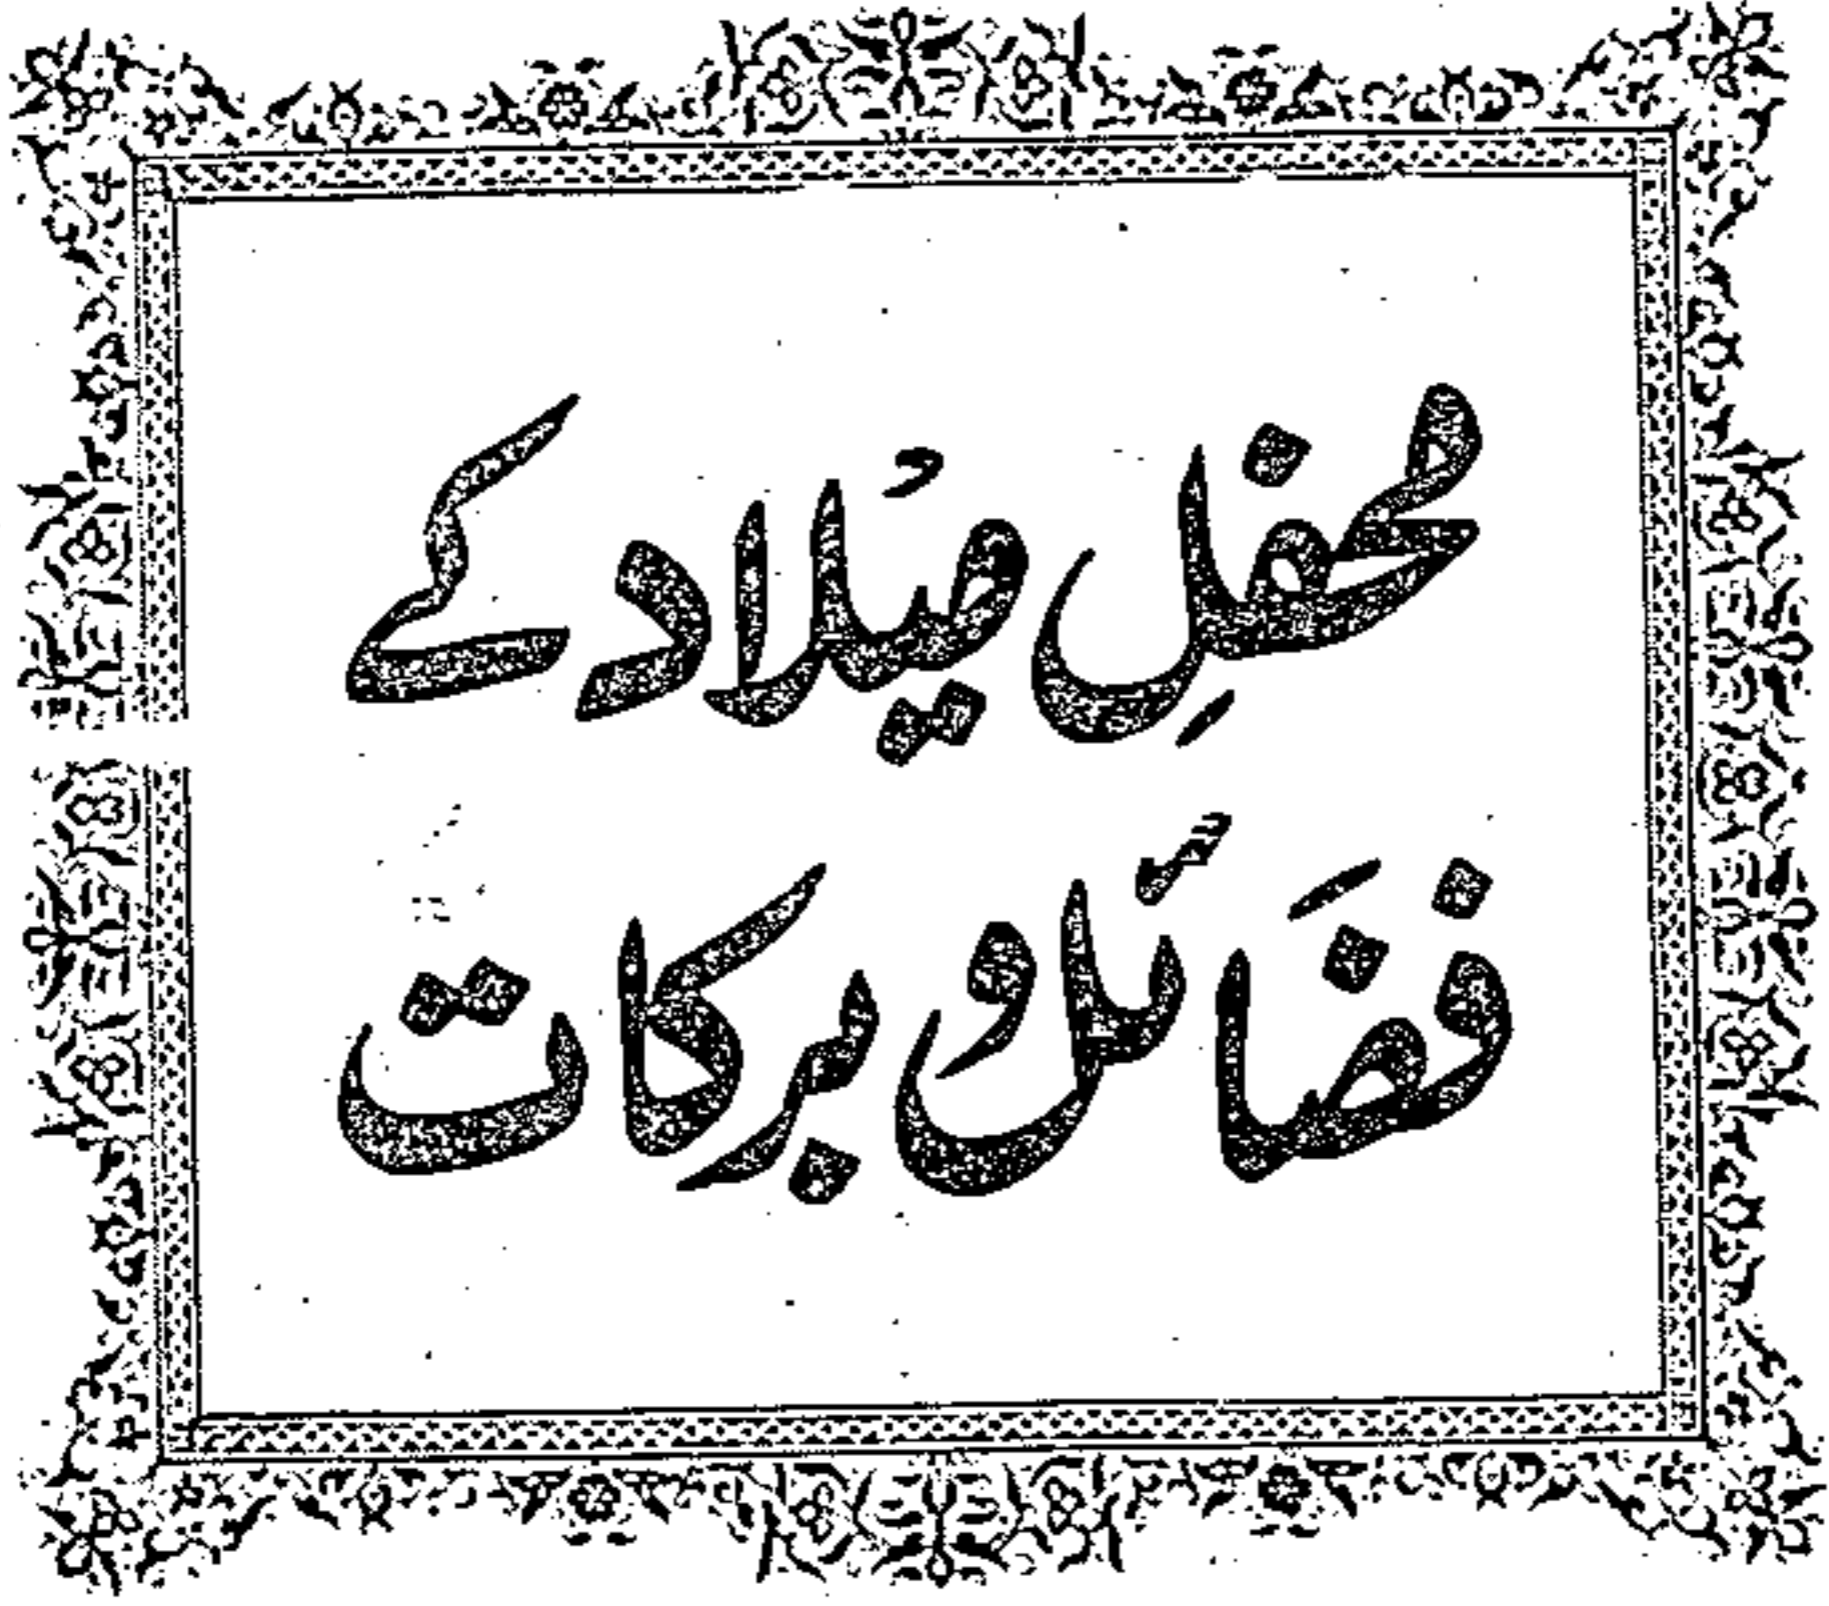 محفلِ میلاد کے
فضَائل و برکات